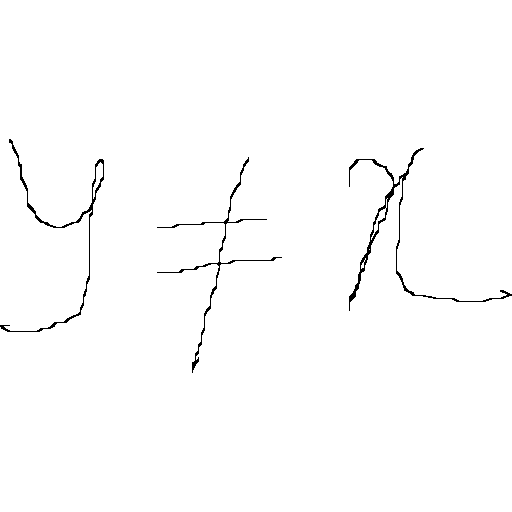 y ≠ x